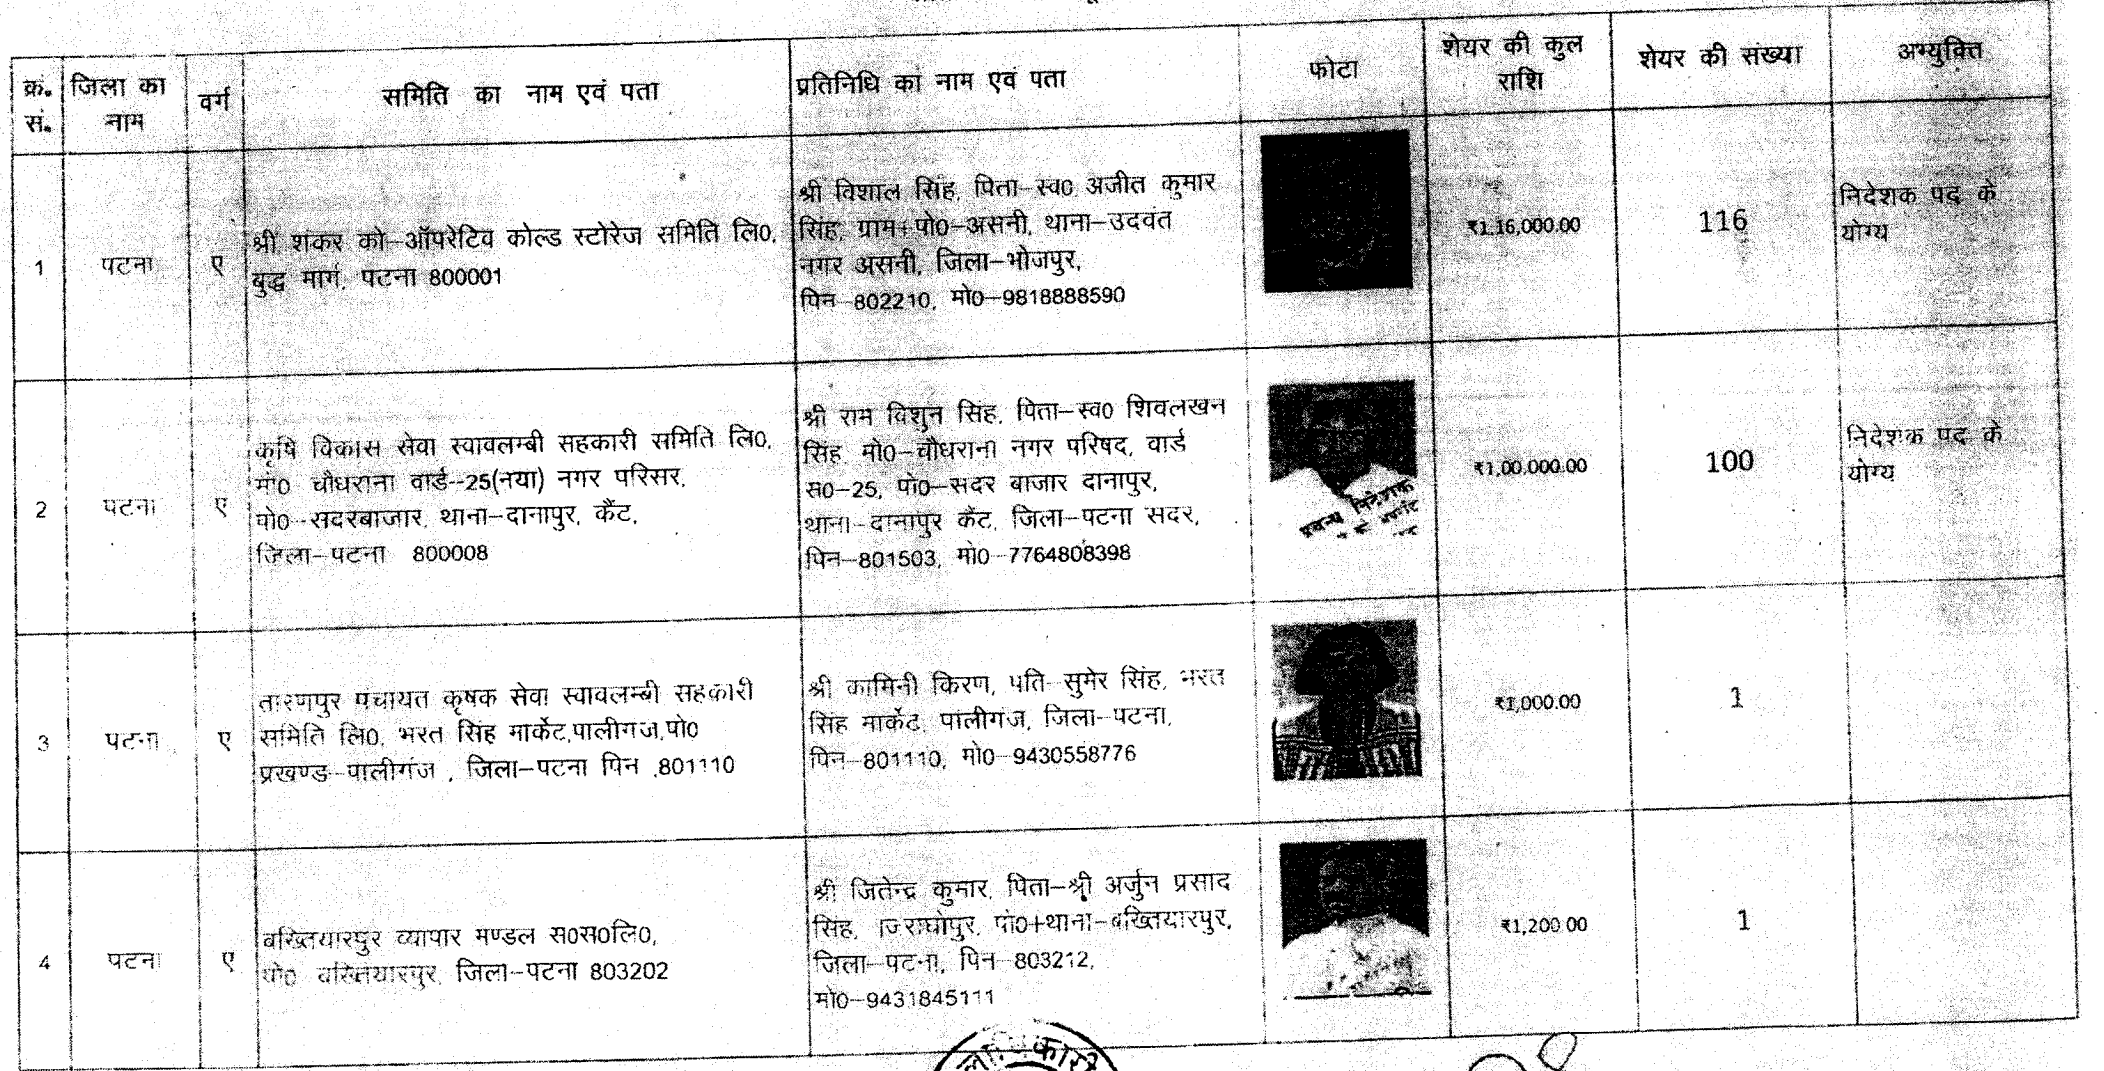 क्र. सं.
जिला का नाम
वर्ग
समिति का नाम एवं पता
प्रतिनिधि का नाम एवं पता
फोटा
शेयर की कुल राशि
शेयर की संख्या
अभ्युक्ति
1
पटना
ए
श्री शंकर को–ऑपरेटिव कोल्ड स्टोरेज समिति लि0,
बुद्ध मार्ग, पटना 800001
श्री विशाल सिंह, पिता–स्व0 अजीत कुमार
सिंह, ग्राम+पो0–असनी, थाना–उदवंत
नगर असनी, जिला–भोजपुर,
पिन–802210, मो0–9818888590
₹1,16,000.00
116
निदेशक पद के
योग्य
2
पटना
ए
कृषि विकास सेवा स्वावलम्बी सहकारी समिति लि0,
मो0 चौधराना वार्ड–25(नया) नगर परिसर,
पो0–सदरबाजार, थाना–दानापुर, कैंट,
जिला–पटना 800008
श्री राम विशुन सिंह, पिता–स्व0 शिवलखन
सिंह मो0–चौधराना नगर परिषद, वार्ड
स0–25, पो0–सदर बाजार दानापुर,
थाना–दानापुर कैंट, जिला–पटना सदर,
पिन–801503, मो0–7764808398
प्रबन्ध निदेशक
₹1,00,000.00
100
निदेशक पद के
योग्य
3
पटना
ए
तारणपुर पंचायत कृषक सेवा स्वावलम्बी सहकारी
समिति लि0, भरत सिंह मार्केट,पालीगंज,पो0
प्रखण्ड–पालीगंज , जिला–पटना पिन ,801110
श्री कामिनी किरण, पति सुमेर सिंह, भरत
सिंह मार्केट, पालीगंज, जिला–पटना,
पिन–801110, मो0–9430558776
₹1,000.00
1
4
पटना
ए
बख्तियारपुर व्यापार मण्डल स0स0लि0,
पो0 बख्तियारपुर, जिला–पटना 803202
श्री जितेन्द्र कुमार, पिता–श्री अर्जुन प्रसाद
सिंह, पो0+थाना–बख्तियारपुर,
जिला–पटना, पिन–803212,
मो0–9431845111
₹1,200.00
1